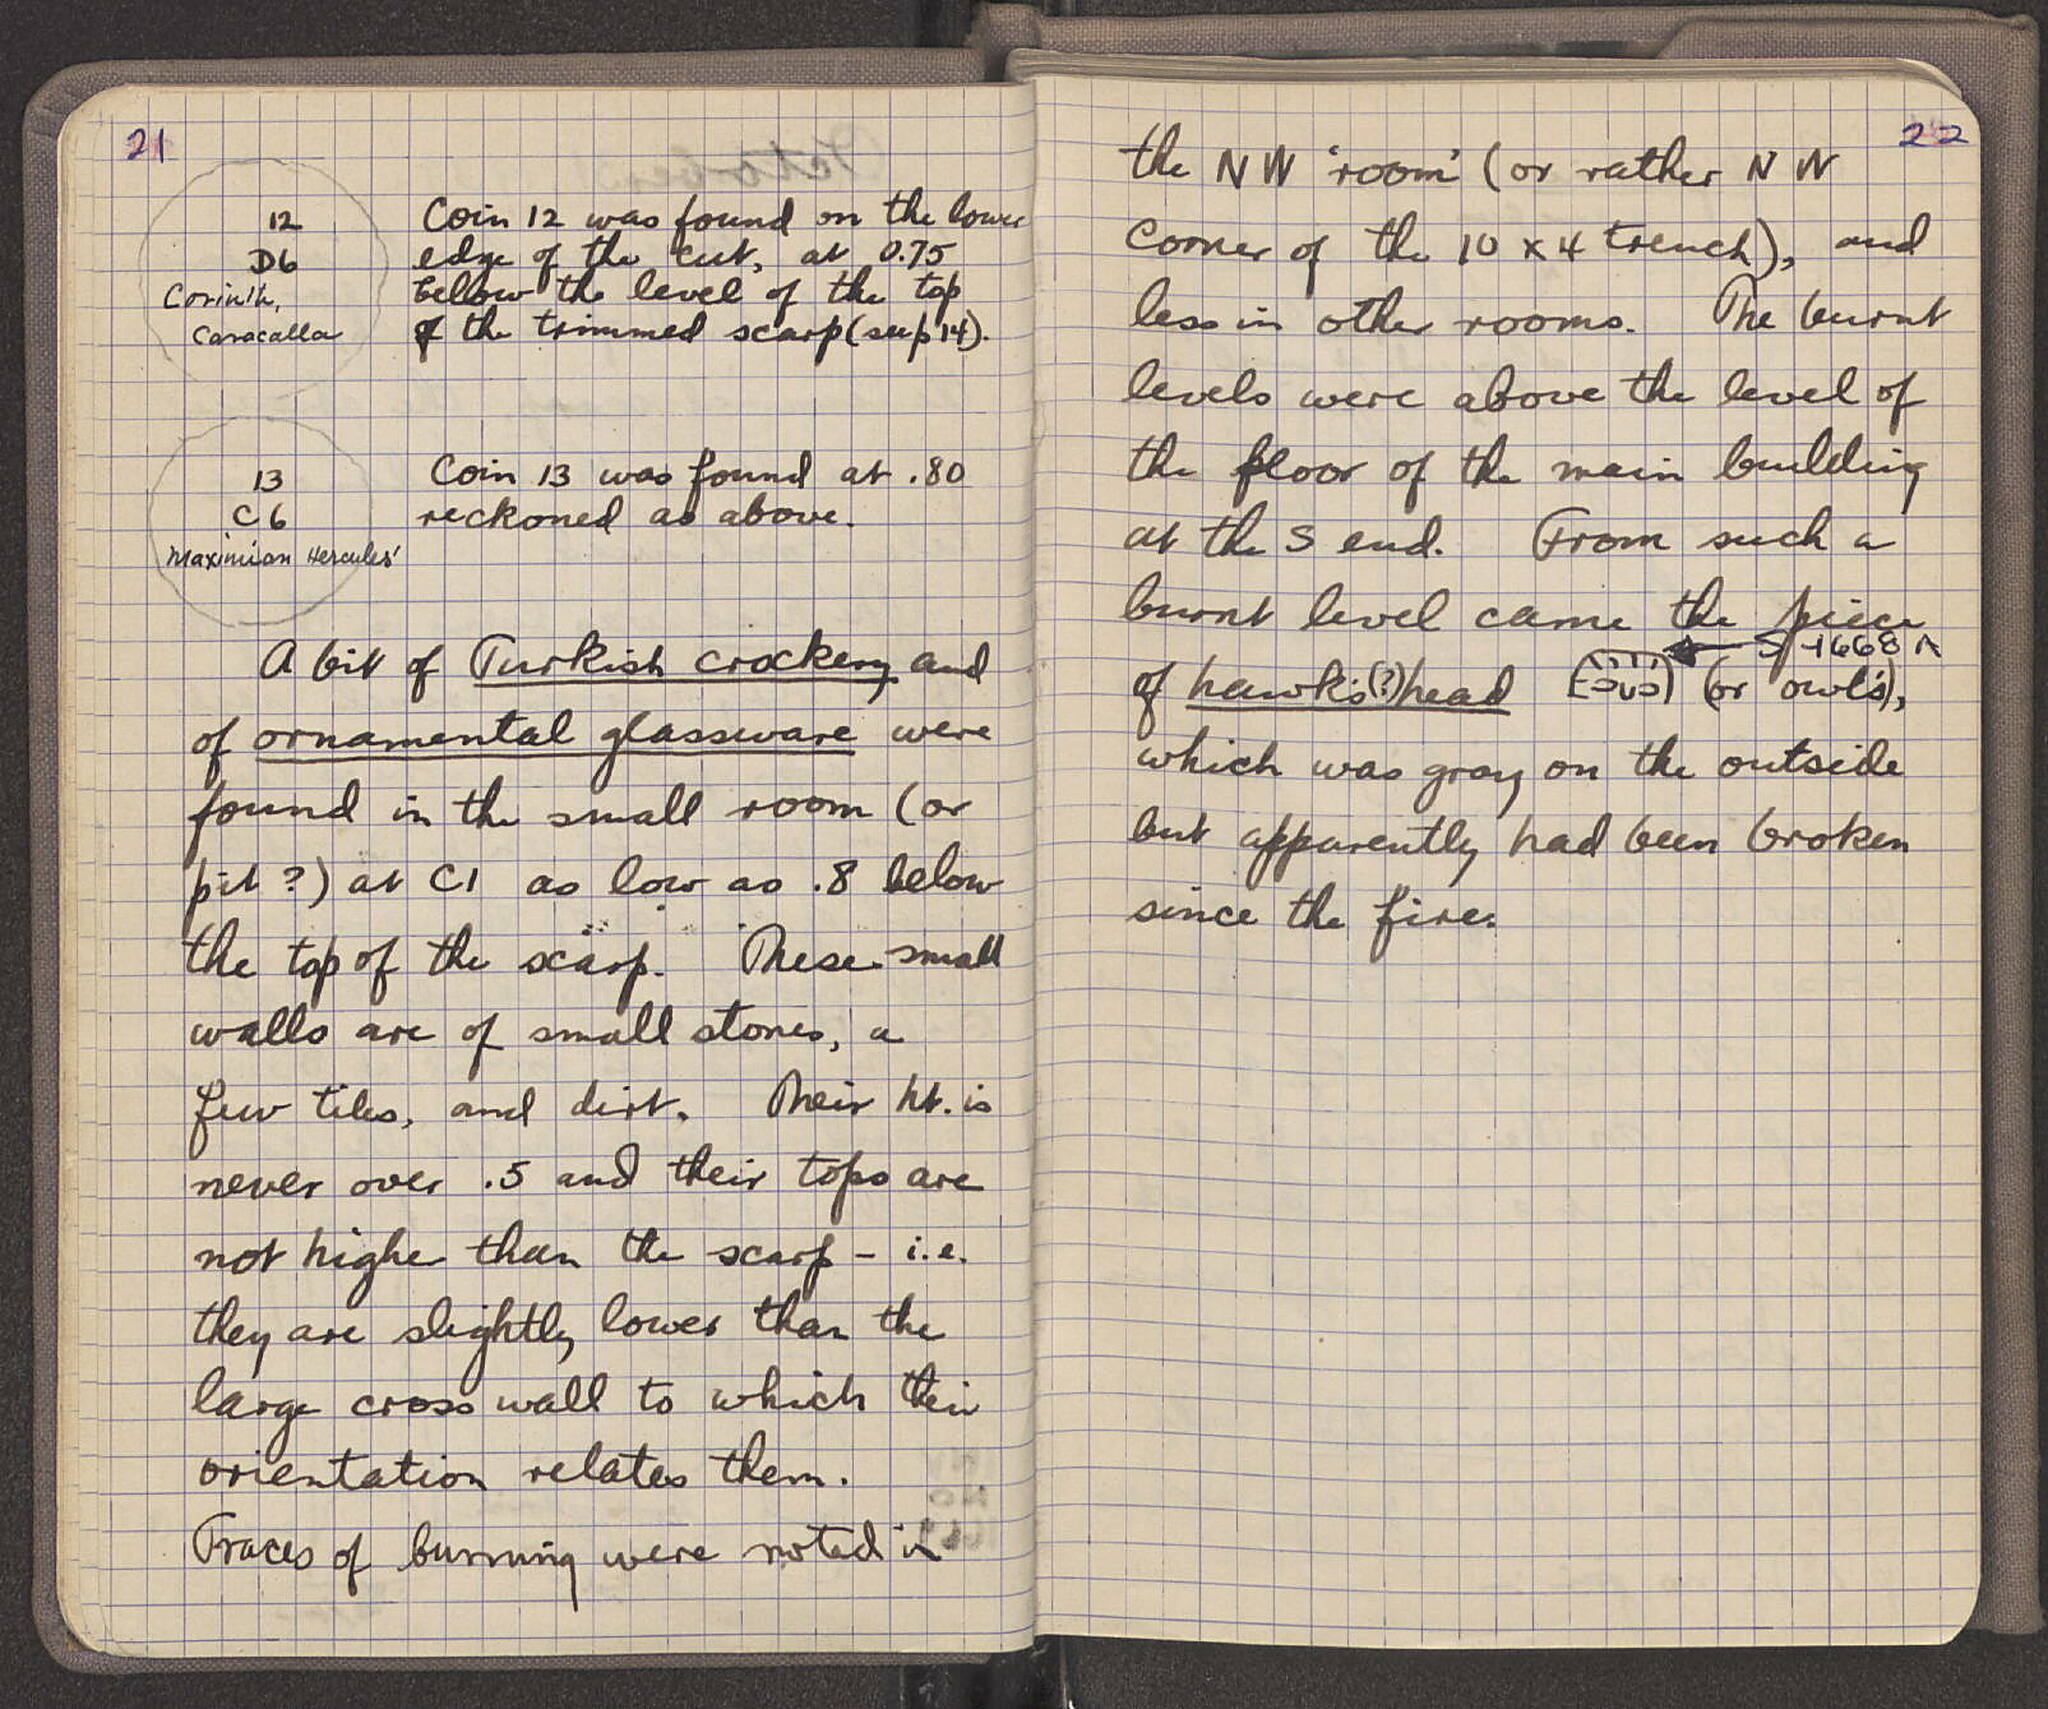 21
12
D6
Corinth,
Caracalla
Coin 12 was found on the lower
edge of the cut, at 0.75
bellow the level of the top
of the trimmed scarp (see p 14).
13
C6
Maximian Hercules'
Coin 13 was found at .80
reckoned as above.
A bit of Turkish crockery and
of ornamental glassware were
found in the small room (or
pit?) at C1 as low as .8 below
the top of the scarp. These small
walls are of small stones, a
few tiles, and dirt. Their ht. is
never over .5 and their tops are
not highe than the scarp - i.e.
they are slightly lower than the
large cross wall to which their
orientation relates them.
Traces of burning were noted in
22
the NW 'room' (or rather NW
corner of the 10 x 4 trench), and
less in other rooms. The burnt
levels were above the level of
the floor of the main building
at the S end. From such a
burnt level came the piece
S 1668 A
of hawk's(?) head (or owl's),
which was gray on the outside
but apparently had been broken
since the fire.